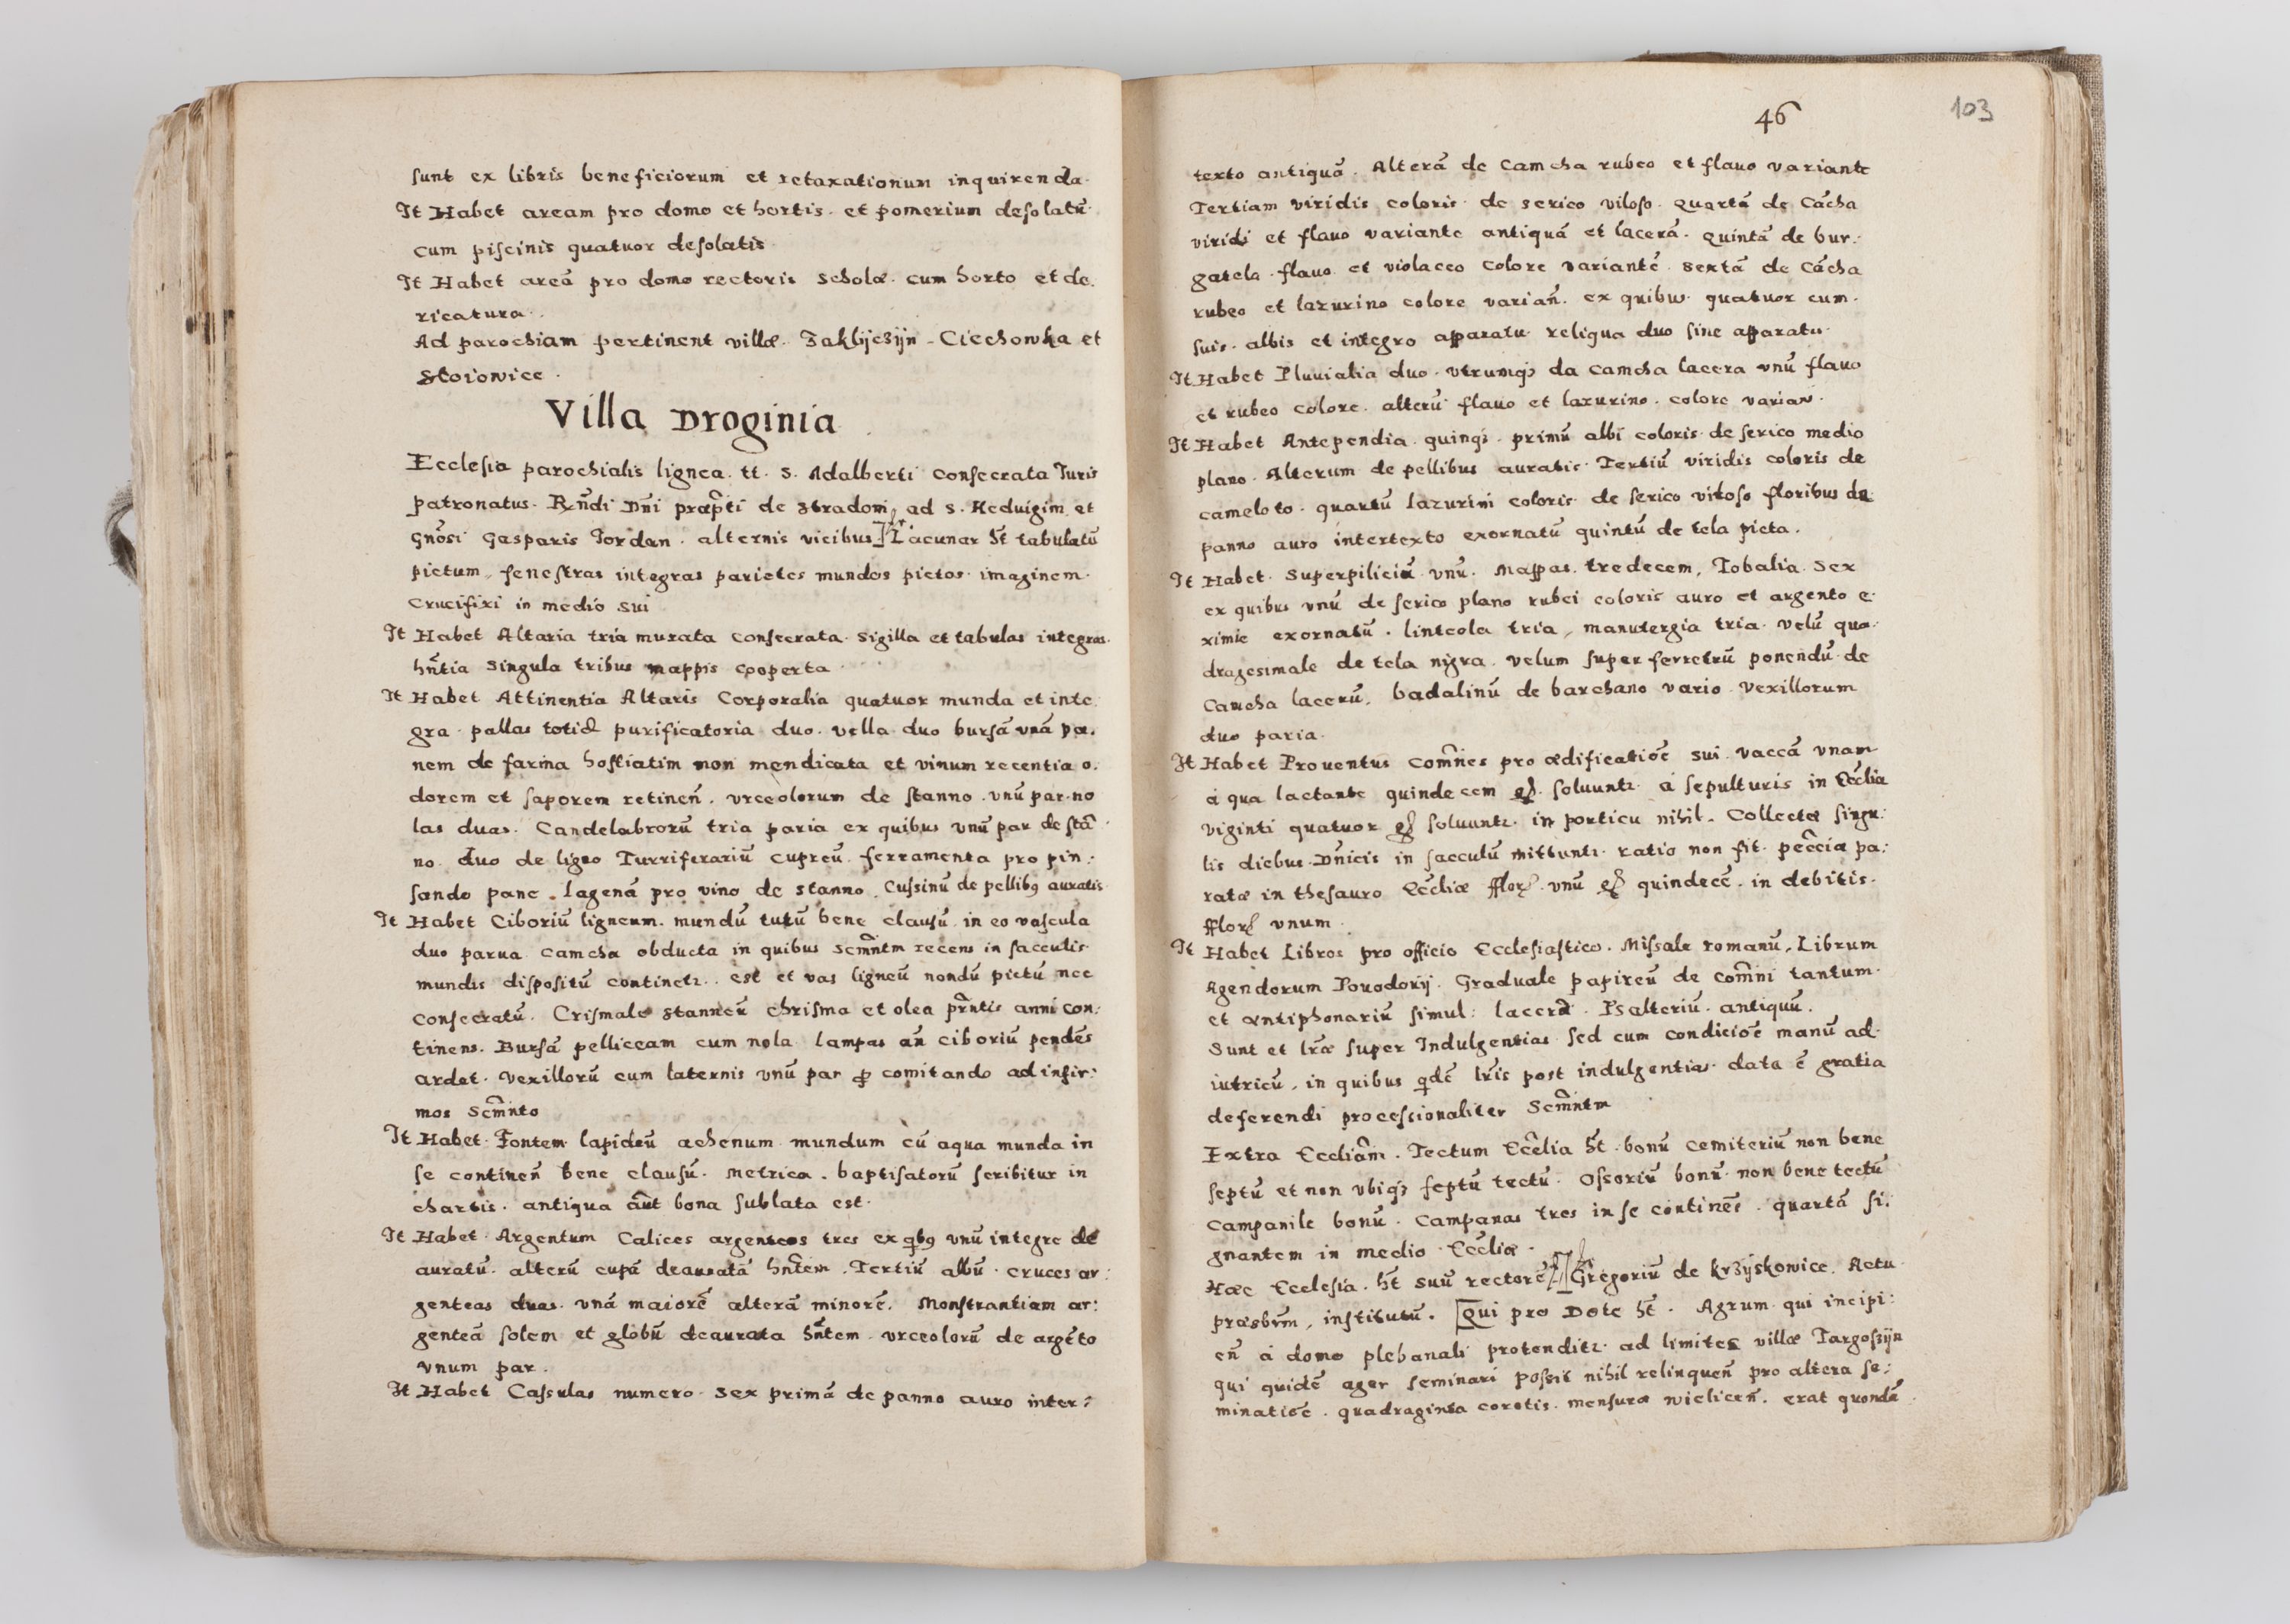 sunt ex libris beneficiorum et retaxationum inquirenda.
It Habet aream pro domo et hortis. et pomerium desolatũ.
cum piscinis quatuor desolatis.
It Habet areã pro domo rectoris scholæ. cum horto et de.
ricatura.
Ad parochiam pertinent villæ. Zaklÿczÿn - Ciechowka et
Stoiowice.
Villa Droginia
Ecclesia parochialis lignea. tt. S. Adalberti consecrata Juris
patronatus. Rñdi Dñi præpti de Stradom, ad S. Heduigim et
gñosi Gasparis Jordan. alternis vicibus] Lacunar ht tabulatũ
pictum, fenestras integras parietes mundos pictos imaginem.
Crucifixi in medio sui
It Habet Altaria tria murata consecrata. Sigilla et tabulas integras.
hñtia singula tribus mappis cooperta.
It Habet Attinentia Altaris Corporalia quatuor munda et inte.
gra. pallas totid purificatoria duo. vella duo bursã vnã pa.
nem de farina hostiatim non mendicata et vinum recentia o.
dorem et saporem retineñ. vrceolorum de stanno. vnũ par. no
las duas. Candelabrorũ tria paria ex quibus vnũ par de stã
no. duo de ligno Turriferariũ cupreũ ferramenta pro pin:
sando pane. lagenã pro vino de stanno. Cussinũ de pellibꝰ auratis
It Habet Ciboriũ ligneum. mundũ tutũ bene clausũ. in eo vascula
duo parua camcha obducta in quibus scm̃ntm recens in sacculis
mundis dispositũ continetr. est et vas ligneũ nondũ pictũ nec
consecratũ. Crismale stanneũ chrisma et olea prñtis anni con:
tinens. Bursã pelliceam cum nola lampas añ ciboriũ pendẽs
ardet. vexillorũ cum laternis vnũ par ꝓ comitando ad infir:
mos scm̃nto
It Habet. Fontem lapideũ aehenum mundum cũ aqua munda in
se contineñ bene clausũ. Metrica. baptisatorũ scribitur in
chartis. antiqua aũt bona sublata est.
It Habet. Argentum Calices argenteos tres ex qbꝰ vnũ integre de
auratũ. alterũ cupã deauratã hñtem. Tertiũ albũ. cruces ar:
genteas duas. vnã maiorẽ alterã minorẽ. Monstrantiam ar:
genteã solem et globũ deaurata hñtem. vrceolorũ de argẽto
vnum par.
It Habet Cassulas numero sex primã de panno auro inter:
46
103
texto antiquã. Alterã de camcha rubeo et flauo variante
Tertiam viridis coloris de serico viloso. quartã de cãcha
viridi et flauo variante antiquã et lacerã. quintã de bur:
gatela flauo et violaceo colore variantẽ. sextã de cãcha
rubeo et lazurino colore variañ. ex quibus quatuor cum.
suis. albis et integro apparatu reliqua duo sine apparatu.
It Habet Pluuialia duo. vtrumqꝫ da camcha lacera vnũ flauo
et rubeo colore. alterũ flauo et lazurino. colore varian.
It Habet Antependia. quinqꝫ. primũ albi coloris de serico medio
plano. Alterum de pellibus auratis. Tertiũ viridis coloris de
cameloto. quartũ lazurini coloris de serico viloso floribus de
panno auro intertexto exornatũ quintũ de tela picta.
It Habet. Superpiliciũ vnũ. Mappas tredecem, Tobalia sex
ex quibus vnũ de serico plano rubei coloris auro et argento e.
ximie exornatũ. linteola tria, manutergia tria. velũ qua.
dragesimale de tela nigra. velum super ferretrũ ponendũ de
camcha lacerũ. badalinũ de barchano vario. vexillorum
duo paria.
It Habet Prouentus com̃nes pro ædificatiõe sui. vaccã vnam
à qua lactante quindecem gſ. soluuntr. à sepulturis in Eccĺia
viginti quatuor gſ soluuntr. in porticu nihil. Collectæ singu:
lis diebus Dñicis in sacculũ mittuntr. ratio non fit. peccĩa pa:
ratæ in thesauro Eccĺiæ fflor. vnũ gſ quindecẽ. in debitis.
fflor vnum.
It Habet Libros pro officio Ecclesiastico. Missale romanũ, Librum
Agendorum Pouodorÿ. Graduale papireũ de com̃ni tantum.
et antiphonariũ simul: lacera. Psalteriũ antiquũ.
Sunt et lr̃æ super Indulgentias sed cum condiciõe manũ ad
iutricũ, in quibus qdẽ lr̃is post indulgentias data ẽ gratia
deferendi processionaliter scm̃ntm
Extra Eccliam̃. Tectum Eccl̃ia ht bonũ cemiteriũ non bene
septũ et non vbiqꝫ septũ tectũ. Ossoriũ bonũ non bene tectũ
campanile bonũ. campanas tres in se continẽs. quartã si:
gnantem in medio Eccĺiæ.
Hæc Ecclesia. ht suũ rectorẽ [Gregoriũ de Krzÿskowice. Actu.
præsbr̃m, institutũ. [Qui pro Dote ht. Agrum qui incipi:
eñ à domo plebanali protenditr. ad limites villæ Targoszÿn
qui quidẽ ager seminari possit nihil relinqueñ pro altera se:
minatiõe. quadraginta coretis. mensuræ wieliceñ. erat quondã